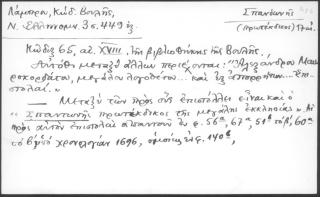 Λάμπρου, Κώδ. Βουλῆς,
Σπαντωνῆς
Ν. Ἑλληνομν. 3 σ. 449 ἑξ.
(πρωτέκδικος)
Κῶδιξ 65, αἰ. XVIII, τῆς βιβλιοθήκης τῆς Βουλῆς.
Αὐτόθι μεταξὺ ἄλλων περιέχονται: "Ἀλεξάνδρου Μαυ-
ροκορδάτου, μεγάλου λογοθέτου... καὶ ἐξ ἀπορρήτων... ἐπι-
στολαί."
— Μεταξὺ τῶν πρὸς οὓς ἐπιστέλλει εἶναι καὶ ὁ
"Σπαντωνῆς πρωτέκδικος τῆς μεγάλης ἐκκλησίας". Αἱ
πρὸς αὐτὸν ἐπιστολαὶ ἀπαντοῦν ἐν φ. 56α, 67α, 51β 60α
χρονολογίαν 1696, ὁμοίως ἐν φ. 140β,